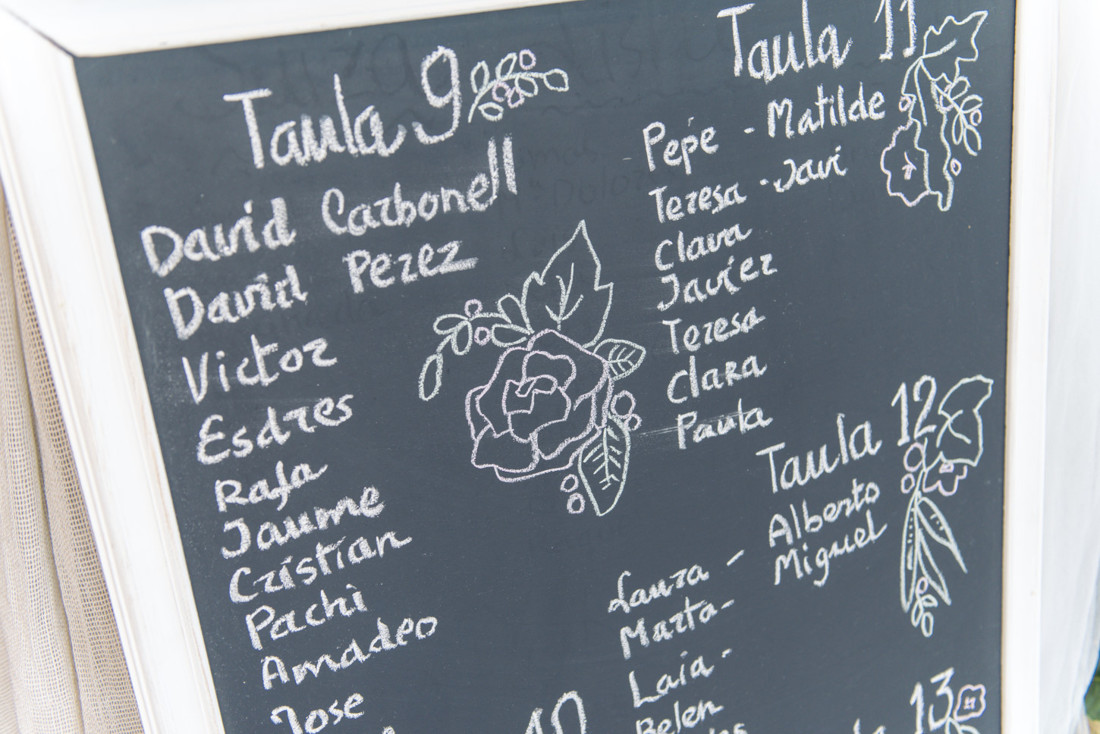 Taula 9
David Carbonell
David Perez
Victor
Esdres
Rafa
Jaume
Cristian
Pachi
Amadeo
Jose
10
Taula 11
Pepe - Matilde
Teresa - Javi
Clara
Javier
Teresa
Clara
Paula
Taula 12
Laura - Alberto
Marta - Miguel
Laia -
Belen
13